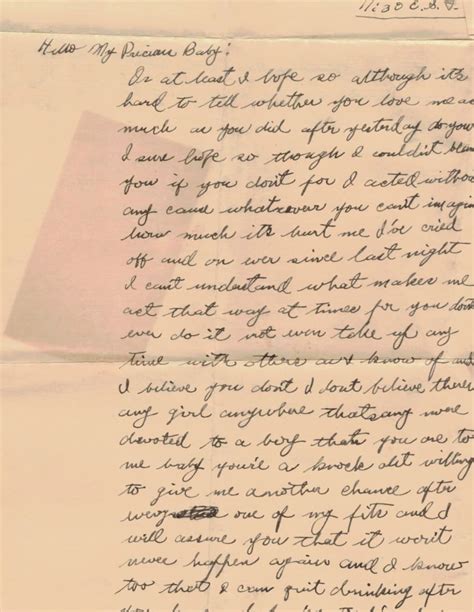 11:30 E.S.T.
Hello My Precious Baby!
Or at least I hope so although it's
hard to tell whether you love me as
much as you did after yesterday do you
I sure hope so though I couldn't blame
you if you don't for I acted without
any cause whatsoever you can't imagin
how much it's hurt me I've cried
off and on ever since last night
I can't understand what makes me
act that way at times for you don't
ever do it not even take up any
time with others as I know of and
I believe you don't I don't believe there
any girl anywhere thats any more
devoted to a boy than you are to
me baby you're a knock out willing
to give me another chance after
every one of my fits and I
will assure you that it won't
never happen again and I know
too that I can quit drinking after